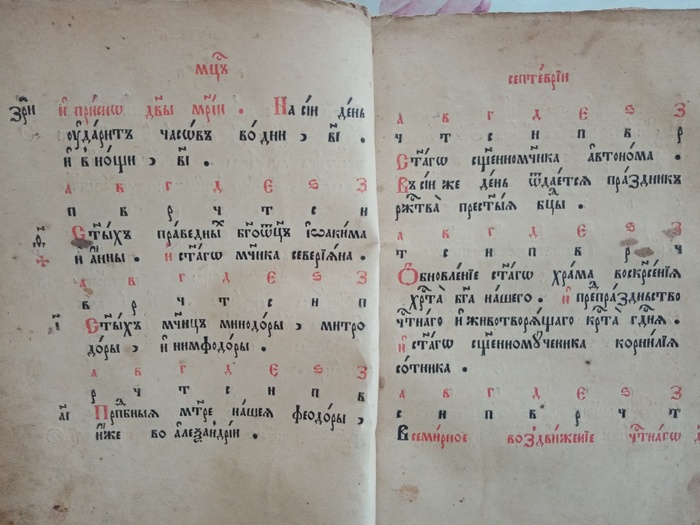 мц҃ъ
зри̂ и҆ при́снѡ дв҃ы мр҃і́и . На сі́и де́нь
ᲂу҆да́ритъ часѡ́въ во́ дни , в҃і .
и҆ в̾ но́щи , в҃і .
а в г д є ѕ з
п в р ч т с и
С҃ты́хъ пра́ведны́хъ бг҃оѻ҆тц҃ъ і҆ѡаки́ма
и҆ а҆́нны . и҆ ст҃а́гѡ мч҃ника северїѧ́на .
а в г д є ѕ з
в р ч т с и п
і҃ Ст҃ы́хъ мч҃ницъ минодо́ры , митро
до́ры , и҆ нимфодо́ры .
а в г д є ѕ з
р ч т с и п в
а҃і Прп҃бныѧ мт҃ре на́шеѧ феодо́ры ,
и҆́же во а҆леѯа́ндрїи .
септе́врїи
а в г д є ѕ з
ч т с и п в р
Ст҃а́гѡ сщ҃енномч҃ника а҆втоно́ма .
Въ сі́и же де́нь ѿдае́тсѧ пра́здникъ
рж҃тва̀ прест҃ы́ѧ бц҃ы .
а в г д є ѕ з
т с и п в р ч
Ѻ҆бновле́нїе ст҃а́гѡ хра́ма воскре́сенїѧ
хр҃та̀ бг҃а на́шего . и҆ препра́здньство
чт҃на́гѡ и҆ животворѧ́щаго кр҃та̀ гд҃нѧ .
и҆ ст҃а́гѡ сщ҃енномꙋ́ченика корни́лїѧ
со́тника .
а в г д є ѕ з
с и п в р ч т
Всеми́рное воздви́женїе чт҃на́гѡ